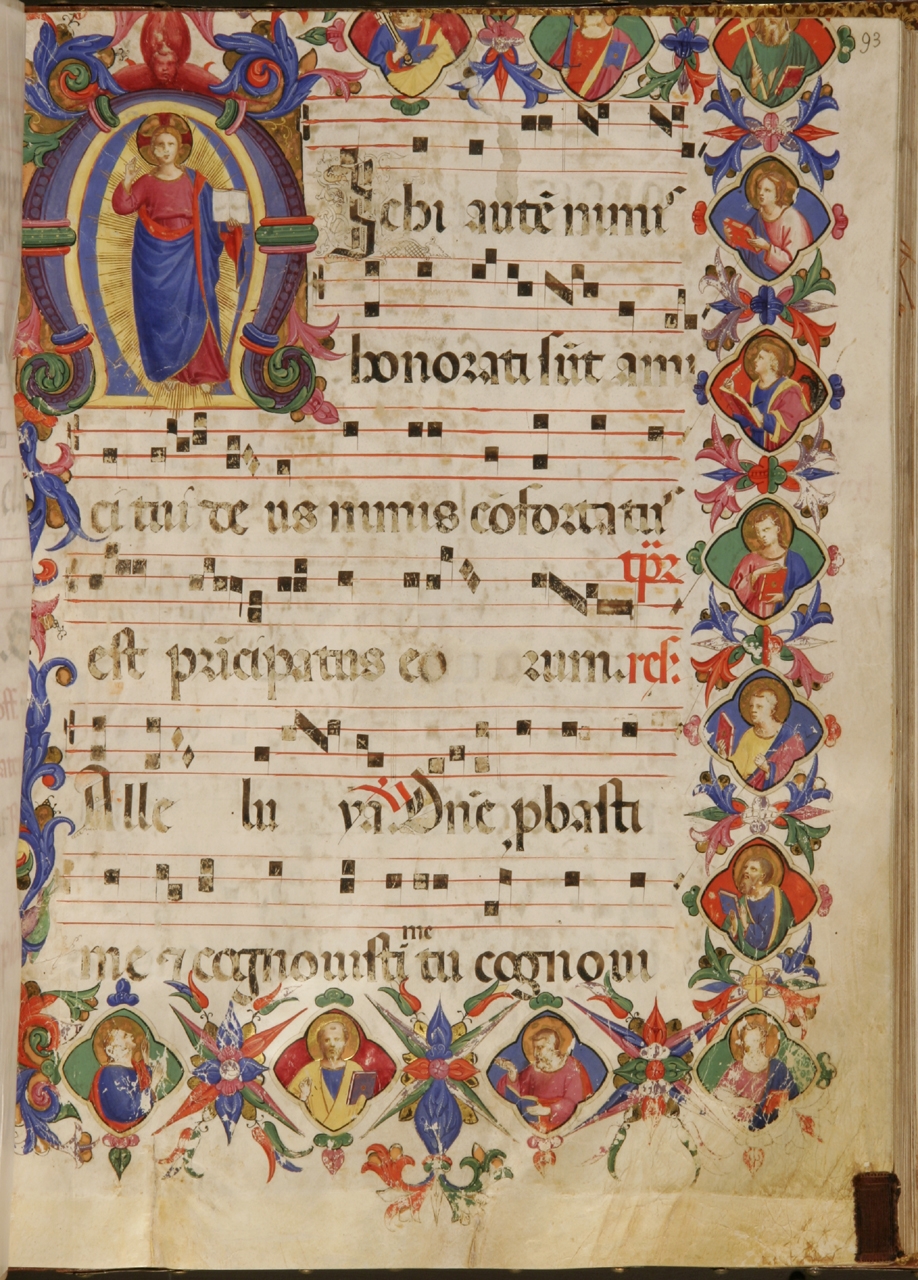 93
Mchi autē nimis
honorati sūt ami
ci tui de us nimis cōfortatus
tp̄r
est prīcipatus eo rum. res:
Alle lu ya. V. Dn̄e pbasti
me
me ⁊ cognouisti tu cognoui